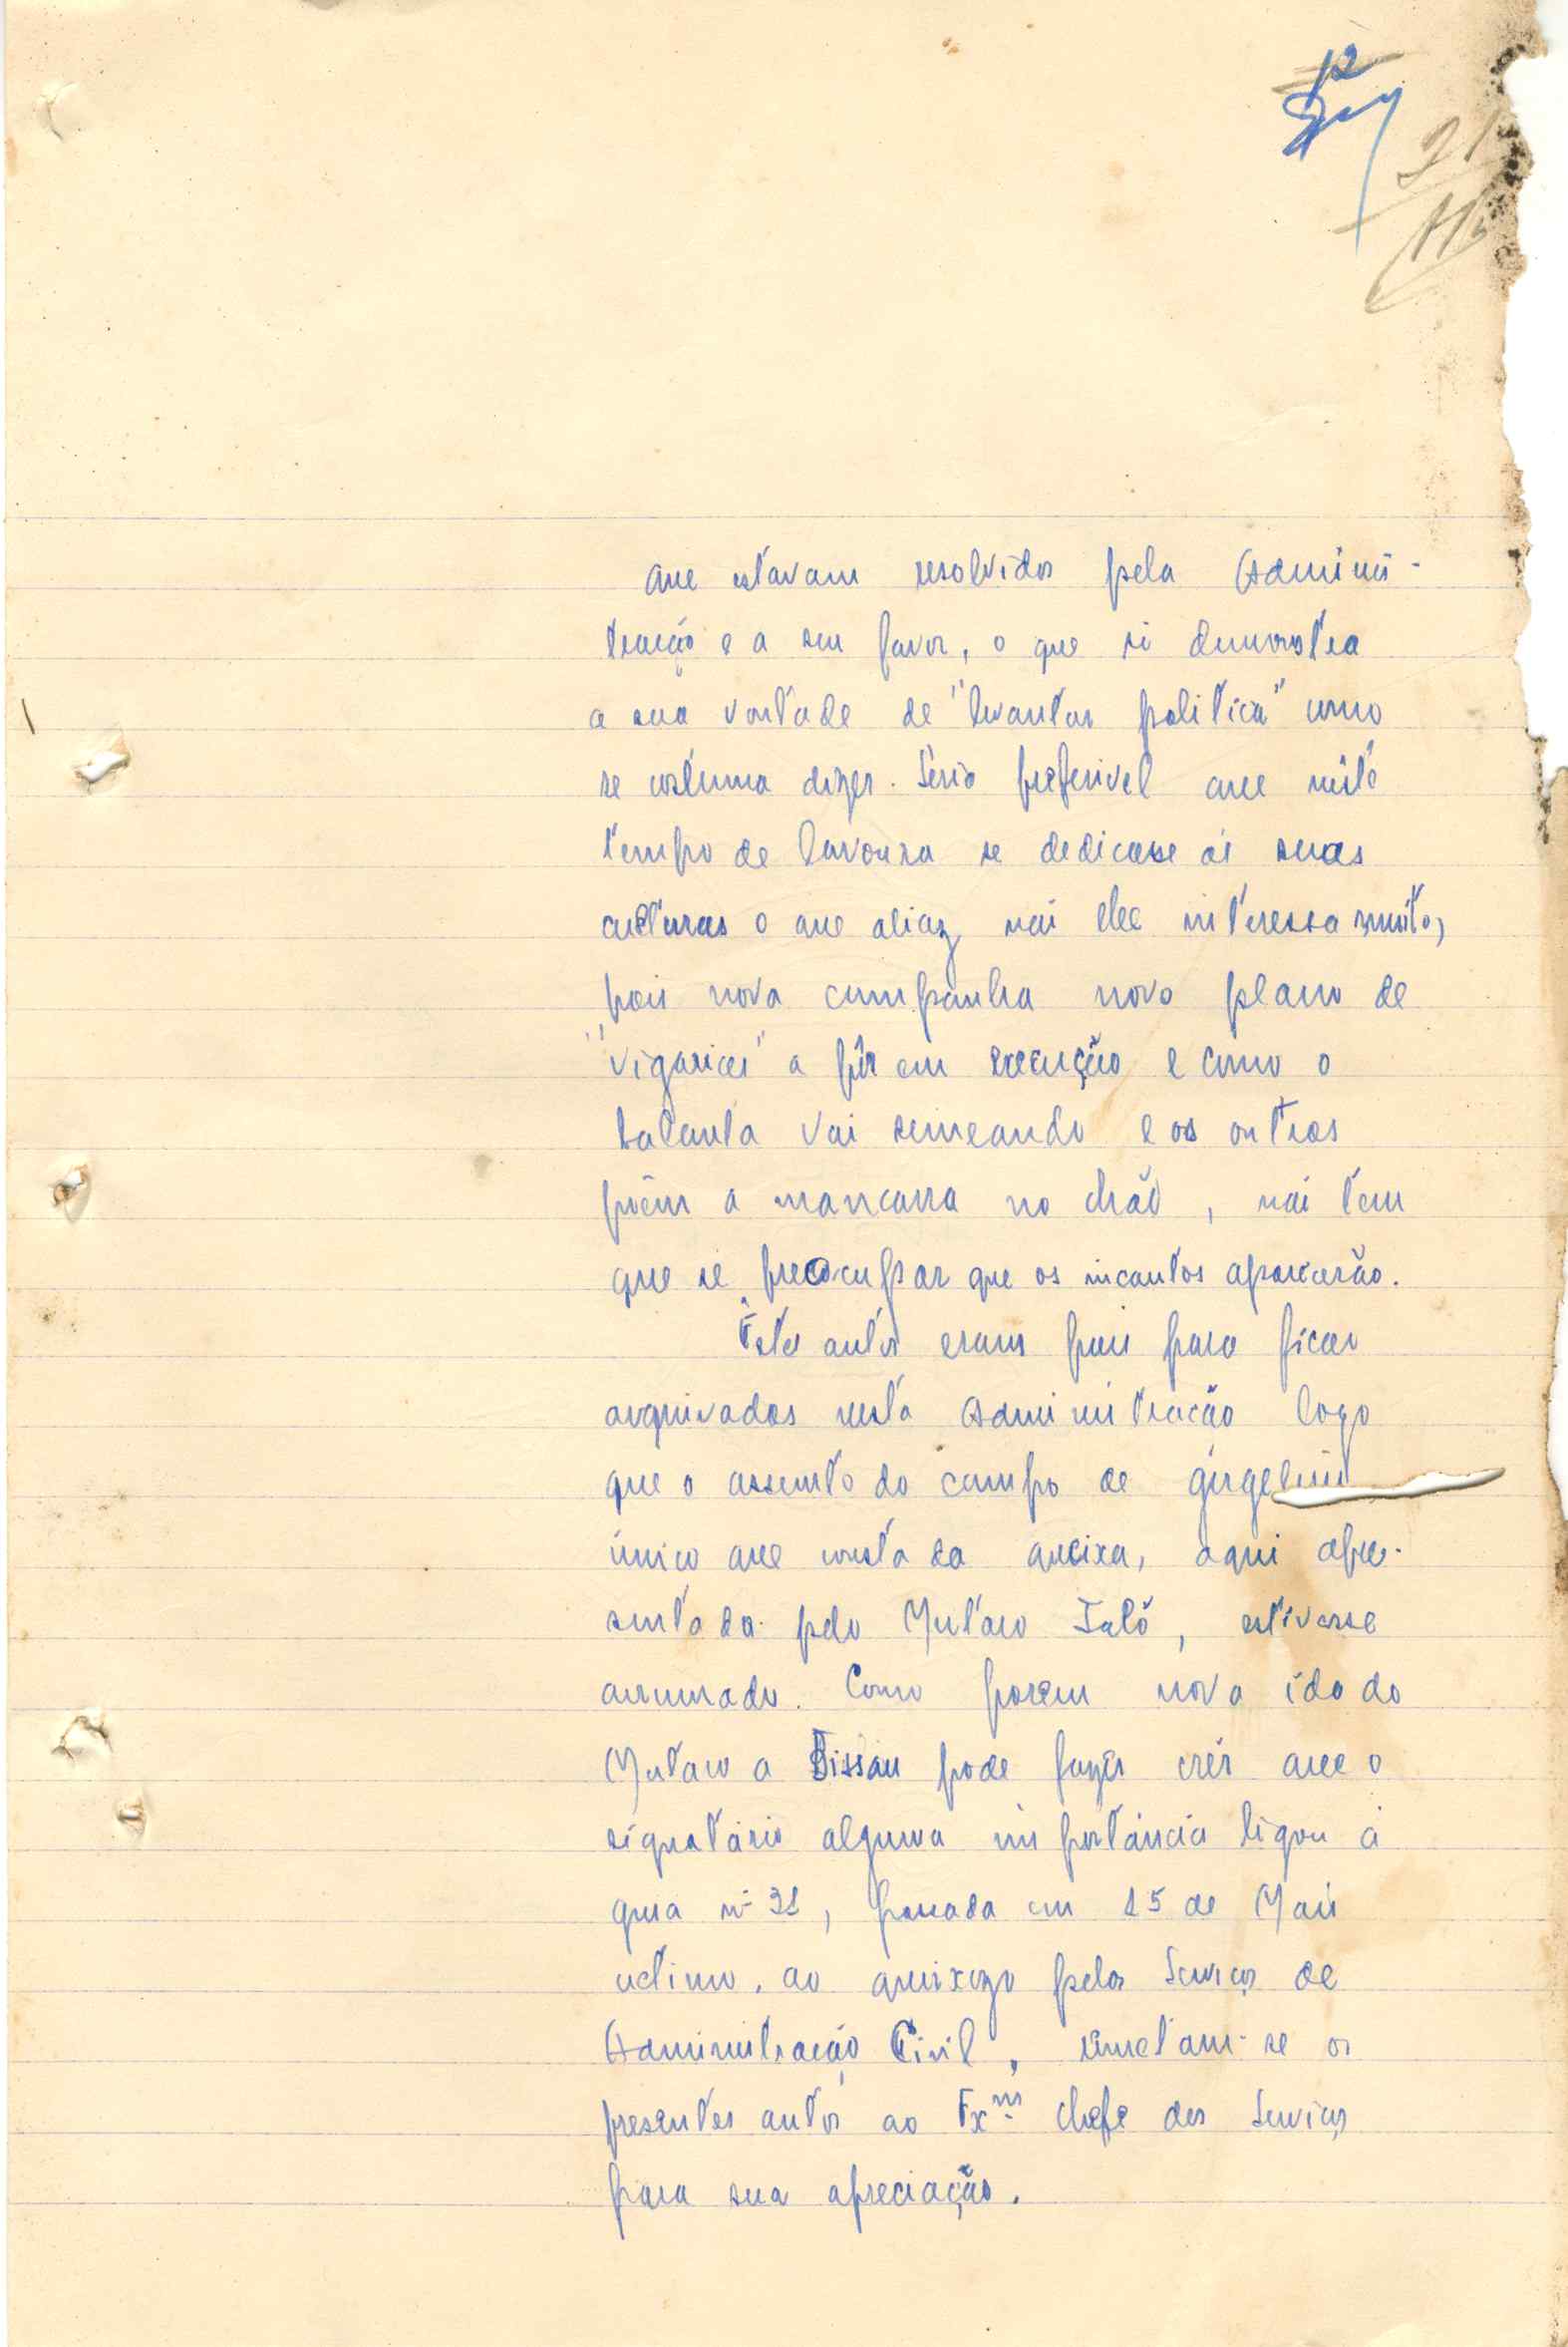 12
21
que estavam resolvidos pela Adminis-
tração e a seu favor, o que só demonstra
a sua vontade de "levantar politica" como
se costuma dizer. Seria preferivel que neste
tempo de lavoura se dedicasse ás suas
culturas o que aliaz não lhe interessa muito,
pois nova campanha novo plano de
"vigarices" a pôr em execução e como o
balanta vai semeando e os outros
põem a mancarra no chão, não tem
que se preocupar que os incautos aparecerão.
Êstes autos eram pois para ficar
arquivados nesta Administração logo
que o assunto do campo de girgelim
único que consta da queixa, aqui apre-
sentada pelo Mutaro Jaló, estivesse
arrumado. Como porem nova ida do
Mutaro a Bissau pode fazer crêr que o
signatário alguma importância ligou á
guia nº 31, passada em 15 de Maio
ultimo, ao queixozo pelos Serviços de
Administração Civil, remetam-se os
presentes autos ao Exmº Chefe dos Serviços
para sua apreciação.